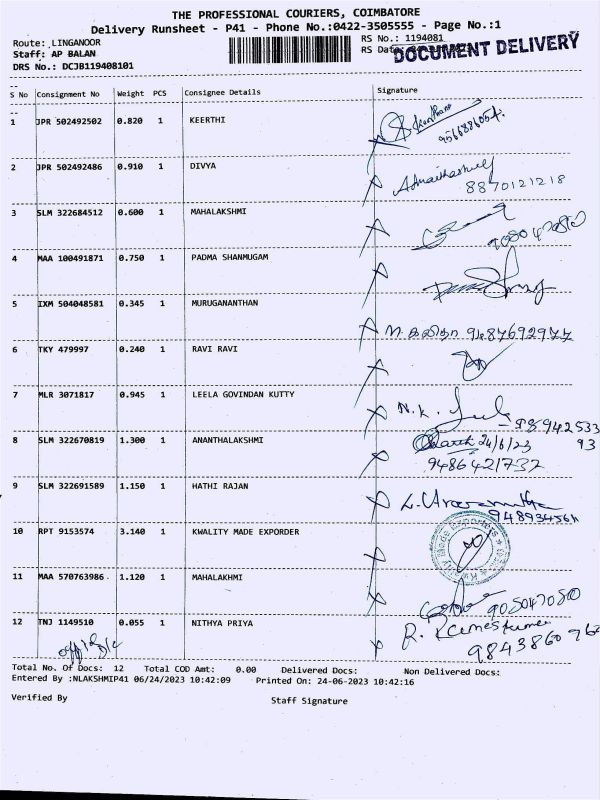 THE PROFESSIONAL COURIERS, COIMBATORE
Delivery Runsheet - P41 - Phone No.:0422-3505555 - Page No.:1
Route: LINGANOOR
RS No.: 1194081
Staff: AP BALAN
RS Date:
DOCUMENT DELIVERY
DRS No.: DCJB119408101
S No Consignment No Weight PCS Consignee Details Signature
1 JPR 502492502 0.820 1 KEERTHI
2 JPR 502492486 0.910 1 DIVYA
8870121218
3 SLM 322684512 0.600 1 MAHALAKSHMI
4 MAA 100491871 0.750 1 PADMA SHANMUGAM
5 IXM 504048581 0.345 1 MURUGANANTHAN
9487692977
6 TKY 479997 0.240 1 RAVI RAVI
7 MLR 3071817 0.945 1 LEELA GOVINDAN KUTTY
N.K.
8 SLM 322670819 1.300 1 ANANTHALAKSHMI
24/6/23
9486421732
9 SLM 322691589 1.150 1 HATHI RAJAN
10 RPT 9153574 3.140 1 KWALITY MADE EXPORDER
11 MAA 570763986 1.120 1 MAHALAKHMI
12 TNJ 1149510 0.055 1 NITHYA PRIYA
Total No. Of Docs: 12 Total COD Amt: 0.00 Delivered Docs: Non Delivered Docs:
Entered By :NLAKSHMIP41 06/24/2023 10:42:09 Printed On: 24-06-2023 10:42:16
Verified By
Staff Signature